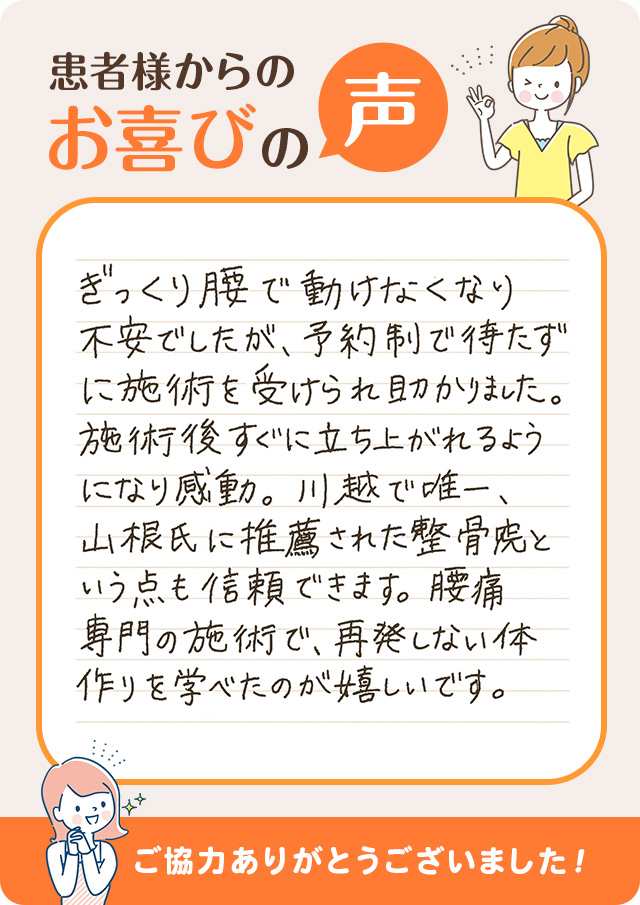 患者様からの
お喜びの声
ぎっくり腰で動けなくなり
不安でしたが、予約制で待たず
に施術を受けられ助かりました。
施術後すぐに立ち上がれるよう
になり感動。川越で唯一、
山根氏に推薦された整骨院と
いう点も信頼できます。腰痛
専門の施術で、再発しない体
作りを学べたのが嬉しいです。
ご協力ありがとうございました!